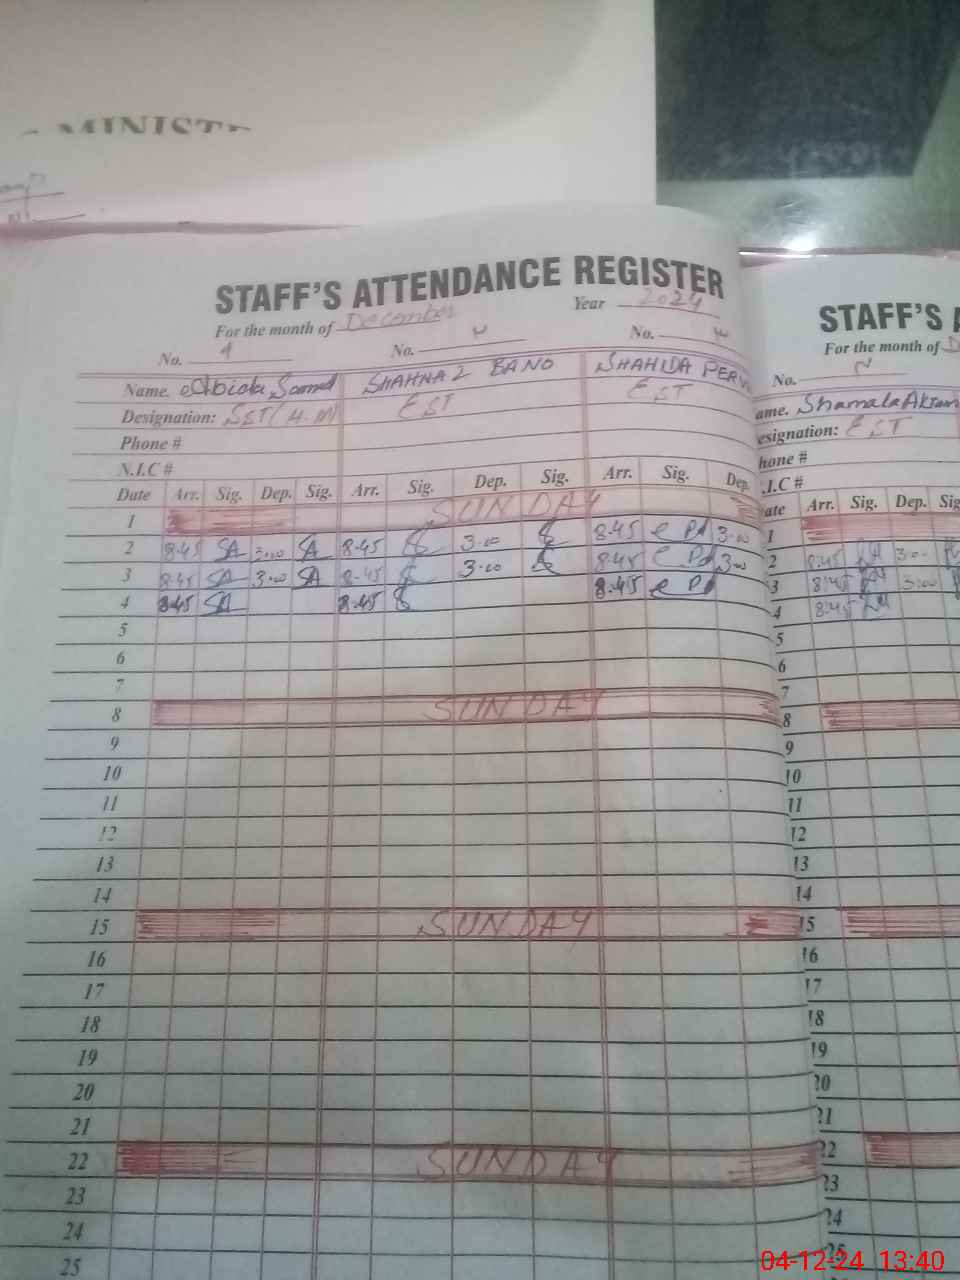 MINISTE
STAFF'S ATTENDANCE REGISTER
For the month of December Year 2024
No. No. No.
Name. Abida Samad SHAHNAZ BANO SHAHIDA PERV
Designation: SST(H.M) EST EST
Phone #
N.I.C #
Date Arr. Sig. Dep. Sig. Arr. Sig. Dep. Sig. Arr. Sig. Dep.
1 SUNDAY
2 8.45 SA 3.00 SA 8.45 3.00 8.45 3.00
3 8.45 SA 3.00 SA 8.45 3.00 8.45 3.00
4 8.45 SA 8.45 8.45
5
6
7
8 SUNDAY
9
10
11
12
13
14
15 SUNDAY
16
17
18
19
20
21
22 SUNDAY
23
24
25
STAFF'S A
For the month of D
No.
ame. Shamala Akram
esignation: EST
hone #
.I.C #
ate Arr. Sig. Dep. Sig
1
2 8.45 3.00
3 8.45 3.00
4 8.45
5
6
7
8
9
10
11
12
13
14
15
16
17
18
19
20
21
22
23
24
25
04-12-24 13:40